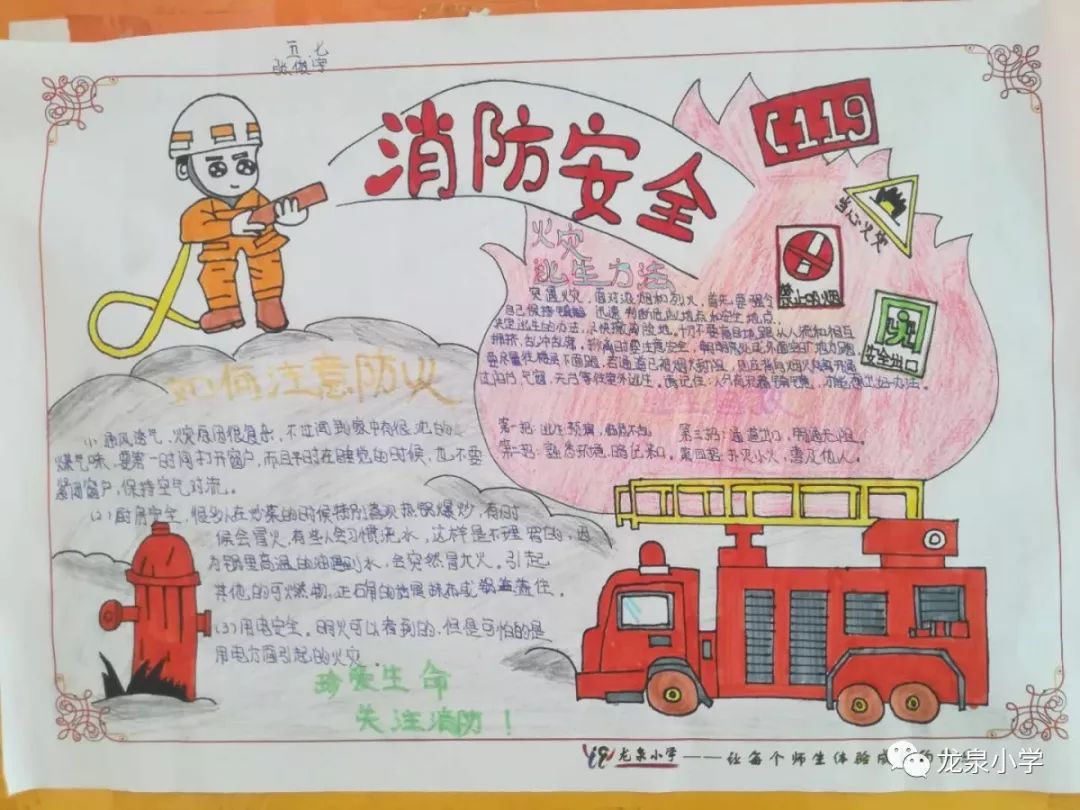 五 七
消防安全
119
当心火灾
禁止吸烟
安全出口
火灾
逃生方法
突遇火灾，面对浓烟和烈火，首先要强令
自己保持镇静，迅速判断危险地点和安全地点，
决定逃生的办法，尽快撤离险地。切不要盲目地跟从人流和相互
拥挤，乱冲乱窜。撤离时要注意安全，朝明亮处或外面空旷地方跑
要尽量往楼层下面跑，若通道已被烟火封阻，则应背向烟火方向离开通
过阳台、气窗、天台等往室外逃生。
第一招：逃生预演，临危不乱。 第三招：通道出口，畅通无阻。
第二招：熟悉环境，暗记出口。 第四招：扑灭小火，惠及他人。
如何注意防火
(1)通风透气，火灾原因很复杂，不过闻到家中有很浓的
煤气味，要第一时间打开窗户，而且平时在睡觉的时候，也不要
紧闭窗户，保持空气对流。
(2)厨房安全，很多人在炒菜的时候特别喜欢热锅爆炒，有时
候会冒火，有些人会习惯浇水，这样是不理智的，因
为锅里高温的油遇到水，会突然冒大火。引起
其他的可燃物，正确的
盖住。
(3)用电安全。明火可以看到的，但是可怕的是
用电方面引起的火灾
珍爱生命
关注消防！
龙泉小学——让每个师生体验成
龙泉小学